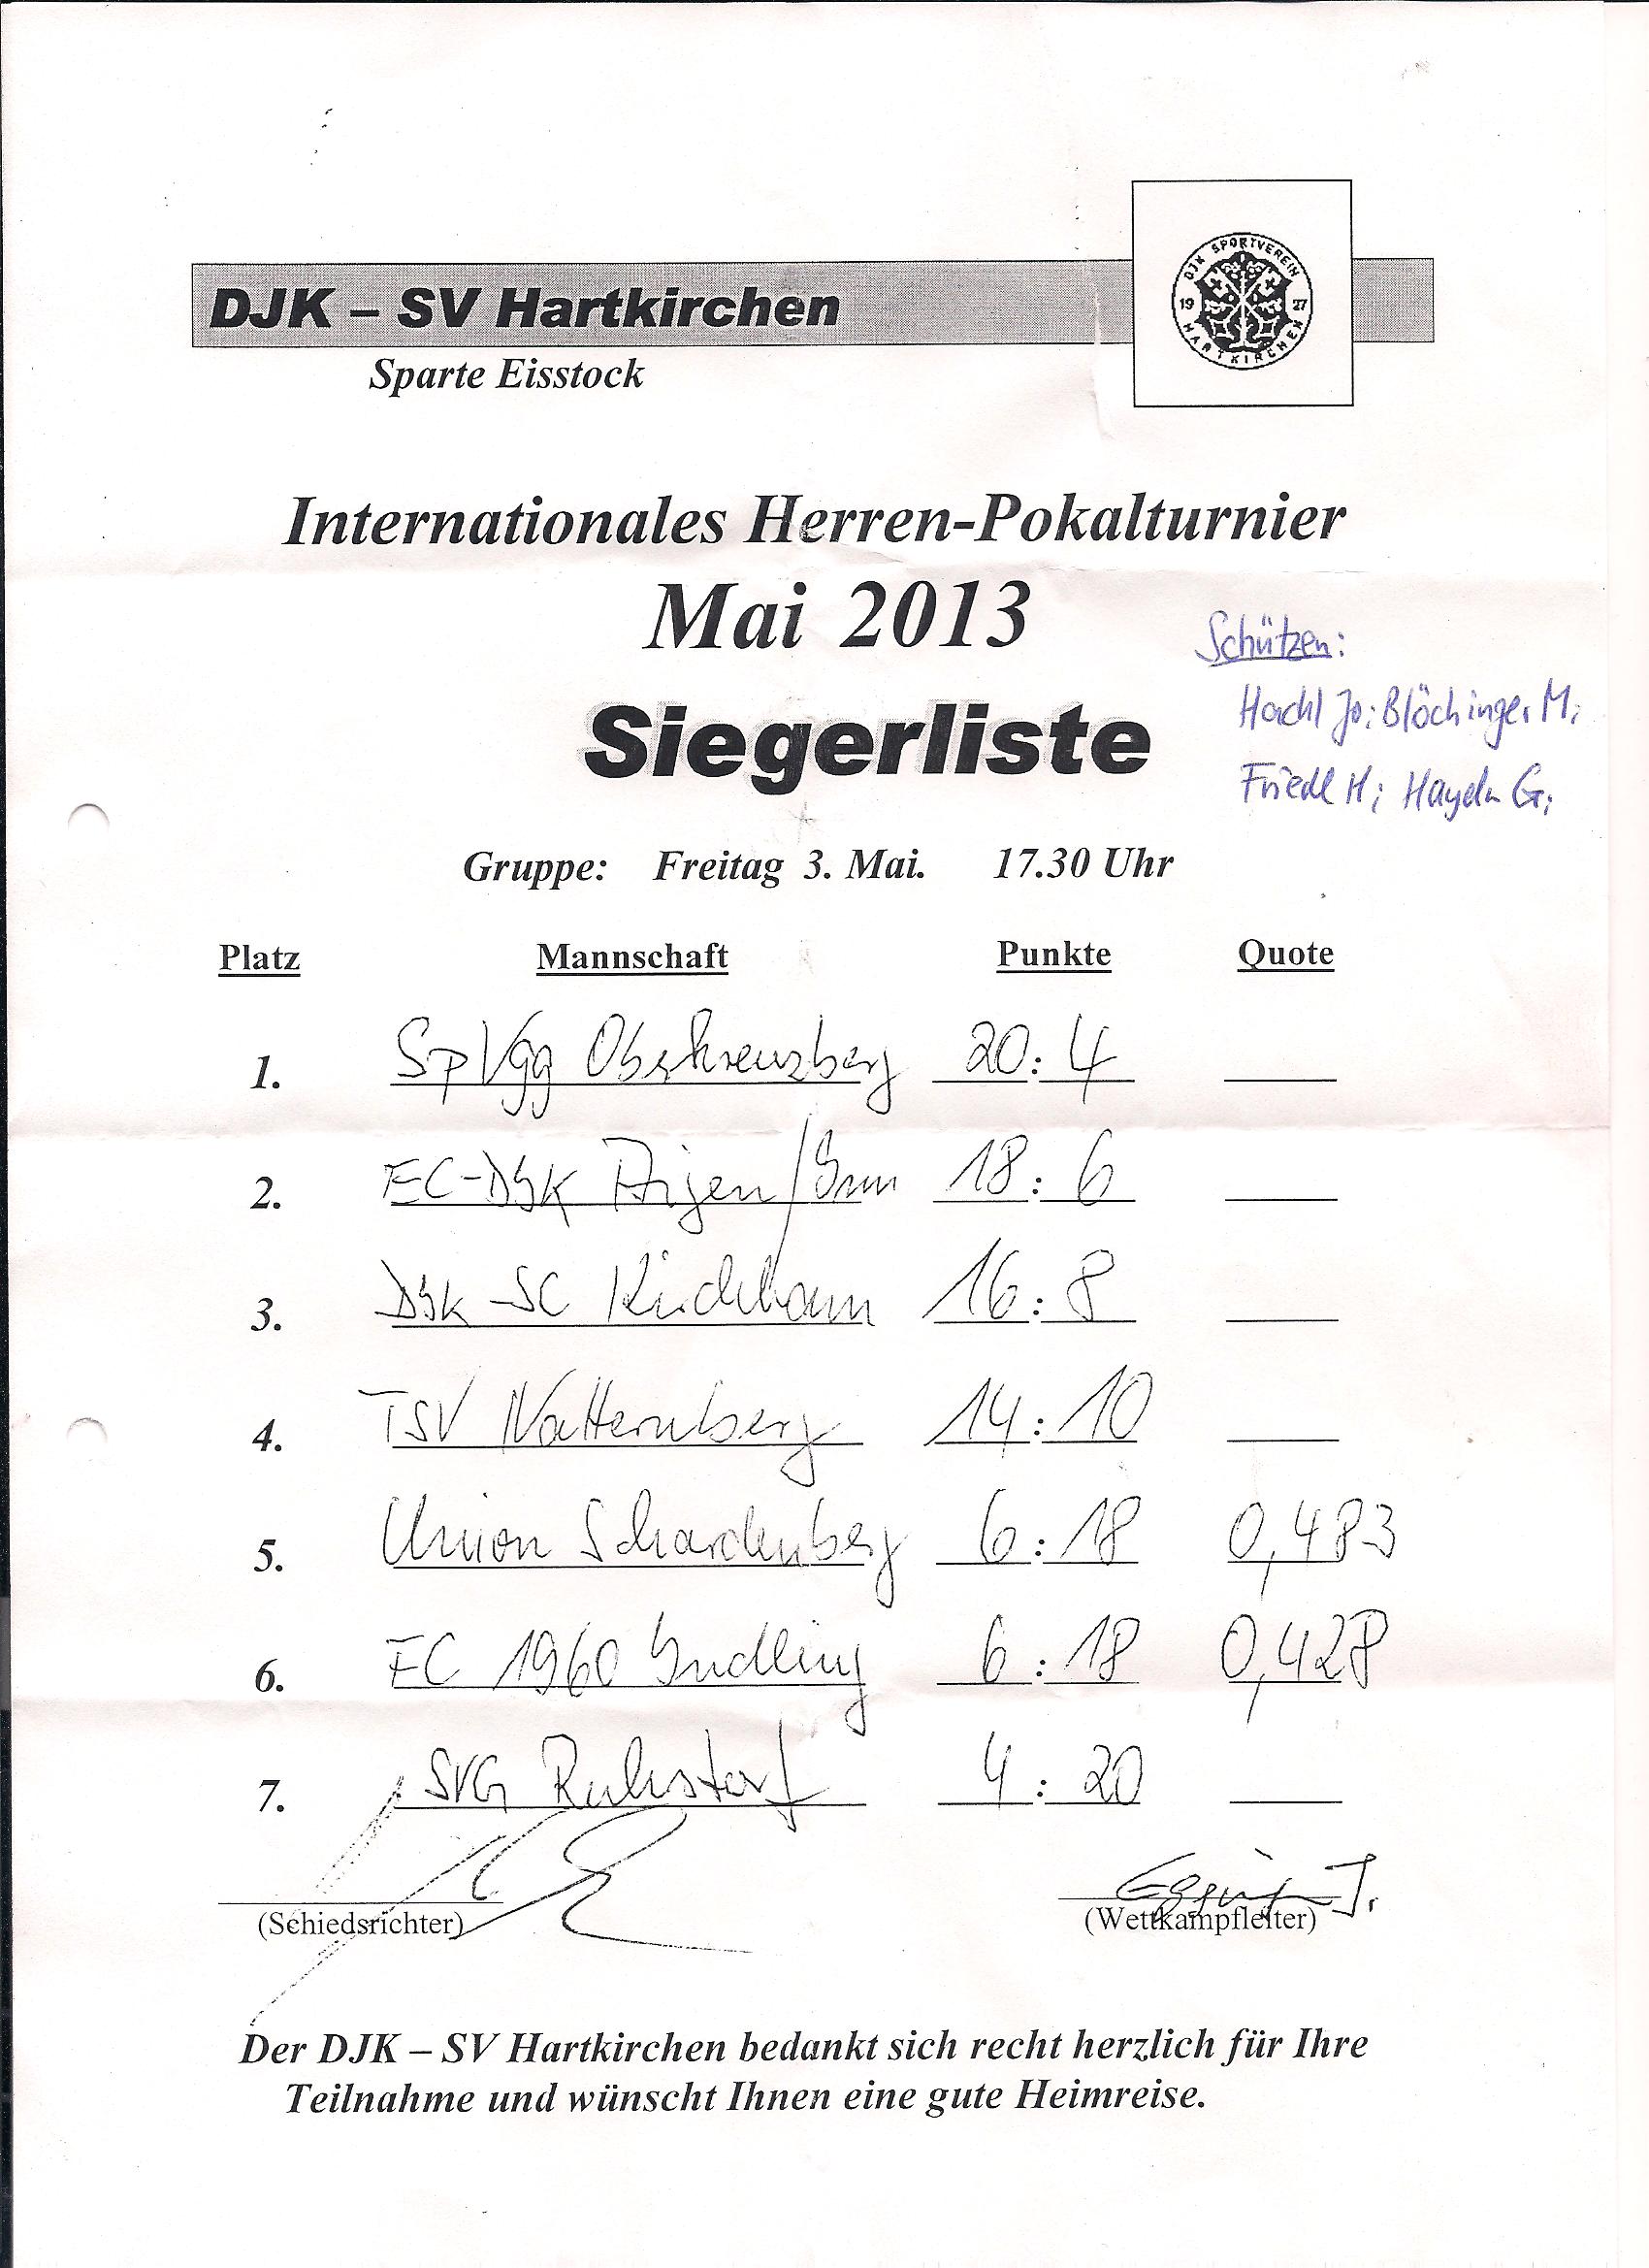 DJK SPORTVEREIN
19 27
HARTKIRCHEN
DJK – SV Hartkirchen
Sparte Eisstock
Internationales Herren-Pokalturnier
Mai 2013
Schützen:
Siegerliste
Hachl Jo; Blöchinger M;
Friedl H; Haydn G;
Gruppe: Freitag 3. Mai. 17.30 Uhr
Platz Mannschaft Punkte Quote
1. SpVgg Oberkreuzberg 20 : 4
2. EC-DJK Aigen/Inn 18 : 6
3. DJK-SC Kirchham 16 : 8
4. TSV Natternberg 14 : 10
5. Union Schardenberg 6 : 18 0,483
6. EC 1960 Indling 6 : 18 0,428
7. SVG Ruhstorf 4 : 20
(Schiedsrichter) (Wettkampfleiter)
Der DJK – SV Hartkirchen bedankt sich recht herzlich für Ihre
Teilnahme und wünscht Ihnen eine gute Heimreise.